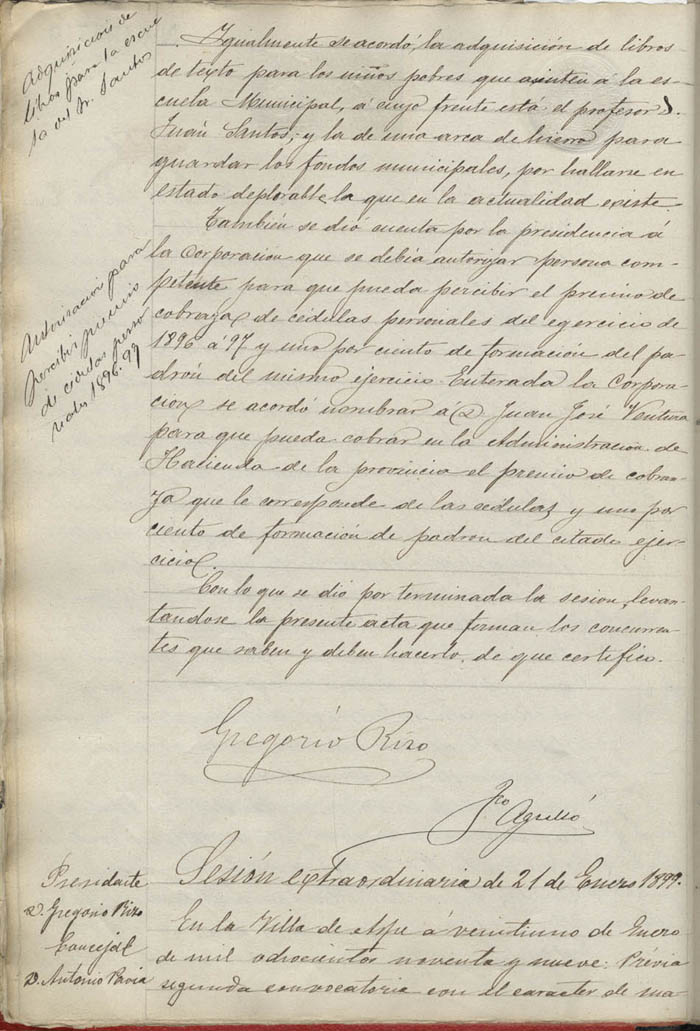 Adquisicion de
libros para la escue
la del Sr. Santos
Igualmente se acordó, la adquisición de libros
de texto para los niños pobres que asisten á la es-
cuela Municipal, á cuyo frente está el profesor D.
Juan Santos; y la de una arca de hierro para
guardar los fondos municipales, por hallarse en
estado deplorable la que en la actualidad existe.
Autorisacion para
percibir premio
de cédulas perso
nales 1896-97
También se dió cuenta por la presidencia á
la Corporacion que se debia autorizar persona com-
petente para que pueda percibir el premio de
cobranza de cédulas personales del egercicio de
1896 á 97 y uno por ciento de formación del pa-
drón del mismo ejercicio. Enterada la Corpora-
cion se acordó nombrar á D Juan José Ventura
para que pueda cobrar en la Administración de
Hacienda de la provincia el premio de cobran-
za que le corresponde de las cédulas y uno por
ciento de formación de padron del citado ejer-
cicio.
Con lo que se dió por terminada la sesion, levan-
tandose la presente acta que forman los concurren-
tes que saben y deben hacerlo, de que certifico.
Gregorio Rizo
Fco Agulló
Sesión extraordinaria de 21 de Enero 1899.
Presidente
D. Gregorio Rizo
Concejal
D. Antonio Pavia
En la Villa de Aspe á veintiuno de Enero
de mil ochocientos noventa y nueve: Prévia
segunda convocatoria con el caracter de ma-